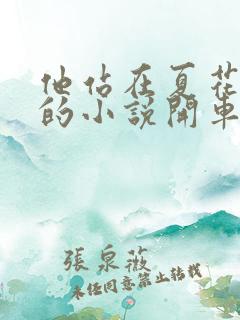 他佔在夏花
的小說開車
張泉薇
未經同意禁止轉載